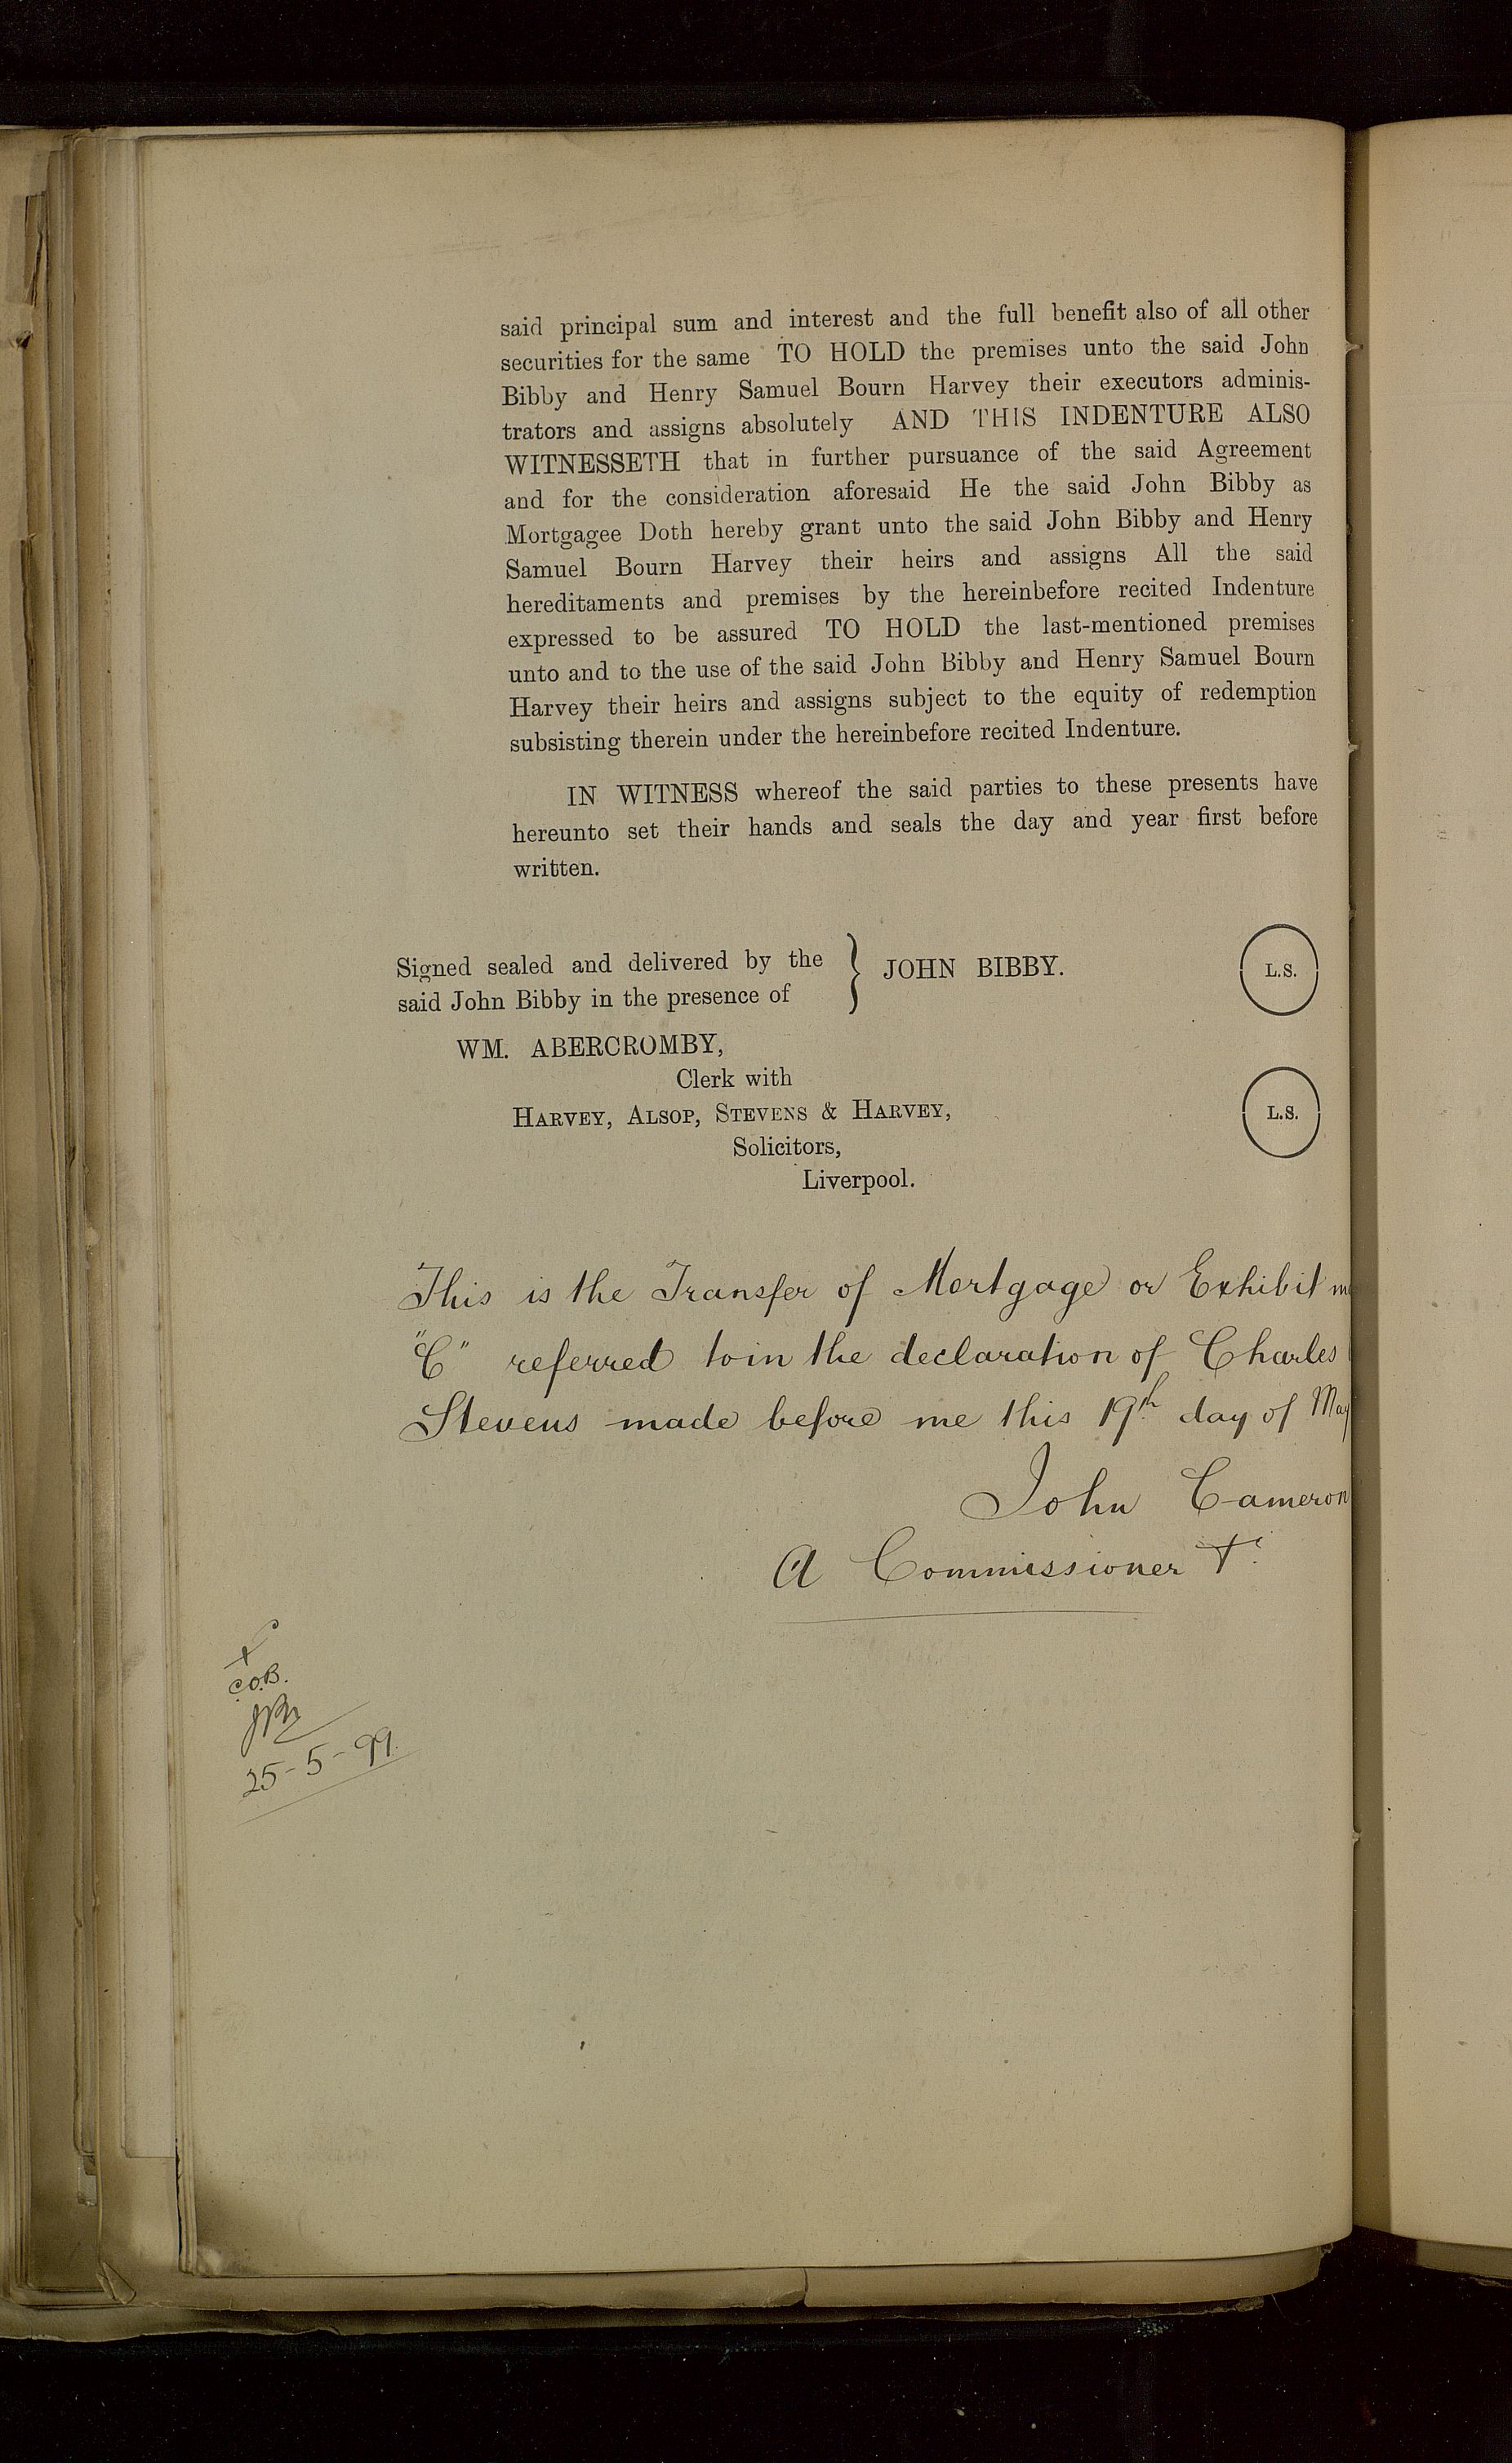 said principal sum and interest and the full benefit also of all other
securities for the same TO HOLD the premises unto the said John
Bibby and Henry Samuel Bourn Harvey their executors adminis-
trators and assigns absolutely AND THIS INDENTURE ALSO
WITNESSETH that in further pursuance of the said Agreement
and for the consideration aforesaid He the said John Bibby as
Mortgagee Doth hereby grant unto the said John Bibby and Henry
Samuel Bourn Harvey their heirs and assigns All the said
hereditaments and premises by the hereinbefore recited Indenture
expressed to be assured TO HOLD the last-mentioned premises
unto and to the use of the said John Bibby and Henry Samuel Bourn
Harvey their heirs and assigns subject to the equity of redemption
subsisting therein under the hereinbefore recited Indenture.
IN WITNESS whereof the said parties to these presents have
hereunto set their hands and seals the day and year first before
written.
Signed sealed and delivered by the
said John Bibby in the presence of
JOHN BIBBY.
L.S.
WM. ABERCROMBY,
Clerk with
HARVEY, ALSOP, STEVENS & HARVEY,
L.S.
Solicitors,
Liverpool.
This is the Transfer of Mortgage or Exhibit
"C" referred to in the declaration of Charles
Stevens made before me this 19th day of May
John Cameron
A Commissioner
C.O.B.
25-5-99.